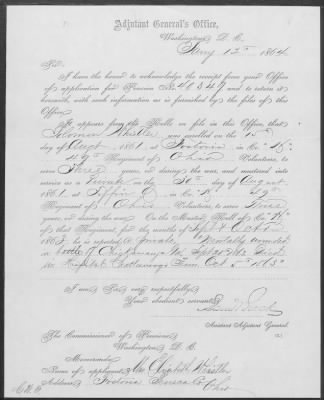 Adjutant General's Office,
Washington, D. C.
Jany 12th 1864
Sir:
I have the honor to acknowledge the receipt from your Office
of application for Pension No. 40,847 and to return it
herewith, with such information as is furnished by the files of this
Office.
It appears from the Rolls on file in this Office, that
Solomon Whistler was enrolled on the 15th
day of Augt 1861, at Fostoria in Co. "H"
49th Regiment of Ohio Volunteers, to
serve Three years, or during the war, and mustered into
service as a Private on the 30th day of August
1861, at Tiffin O, in Co. "H" 49th
Regiment of Ohio Volunteers, to serve Three
years, or during the war. On the Muster Roll of Co. "H"
of that Regiment, for the months of Sept & Oct
1863, he is reported a Private, Mortally wounded
in battle of Chickamauga Ga Sept 1863 Died
in Hospital Chattanooga Tenn Oct 5th 1863
I am, Sir, very respectfully,
Your obedient servant,
Assistant Adjutant General.
The Commissioner of Pensions,
Washington, D. C.
Memoranda:
Name of applicant, Mrs Elizabeth Whistler
Address, Fostoria Seneca Co
Ohio